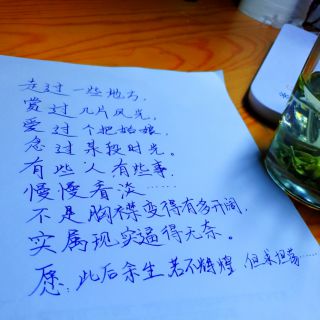 走过一些地方，
赏过几片风光，
爱过个把姑娘，
忽过某段时光。
有些人有些事，
慢慢看淡……
不是胸襟变得有多开阔，
实属现实逼得无奈。
愿：此后余生若不辉煌，但求坦荡……